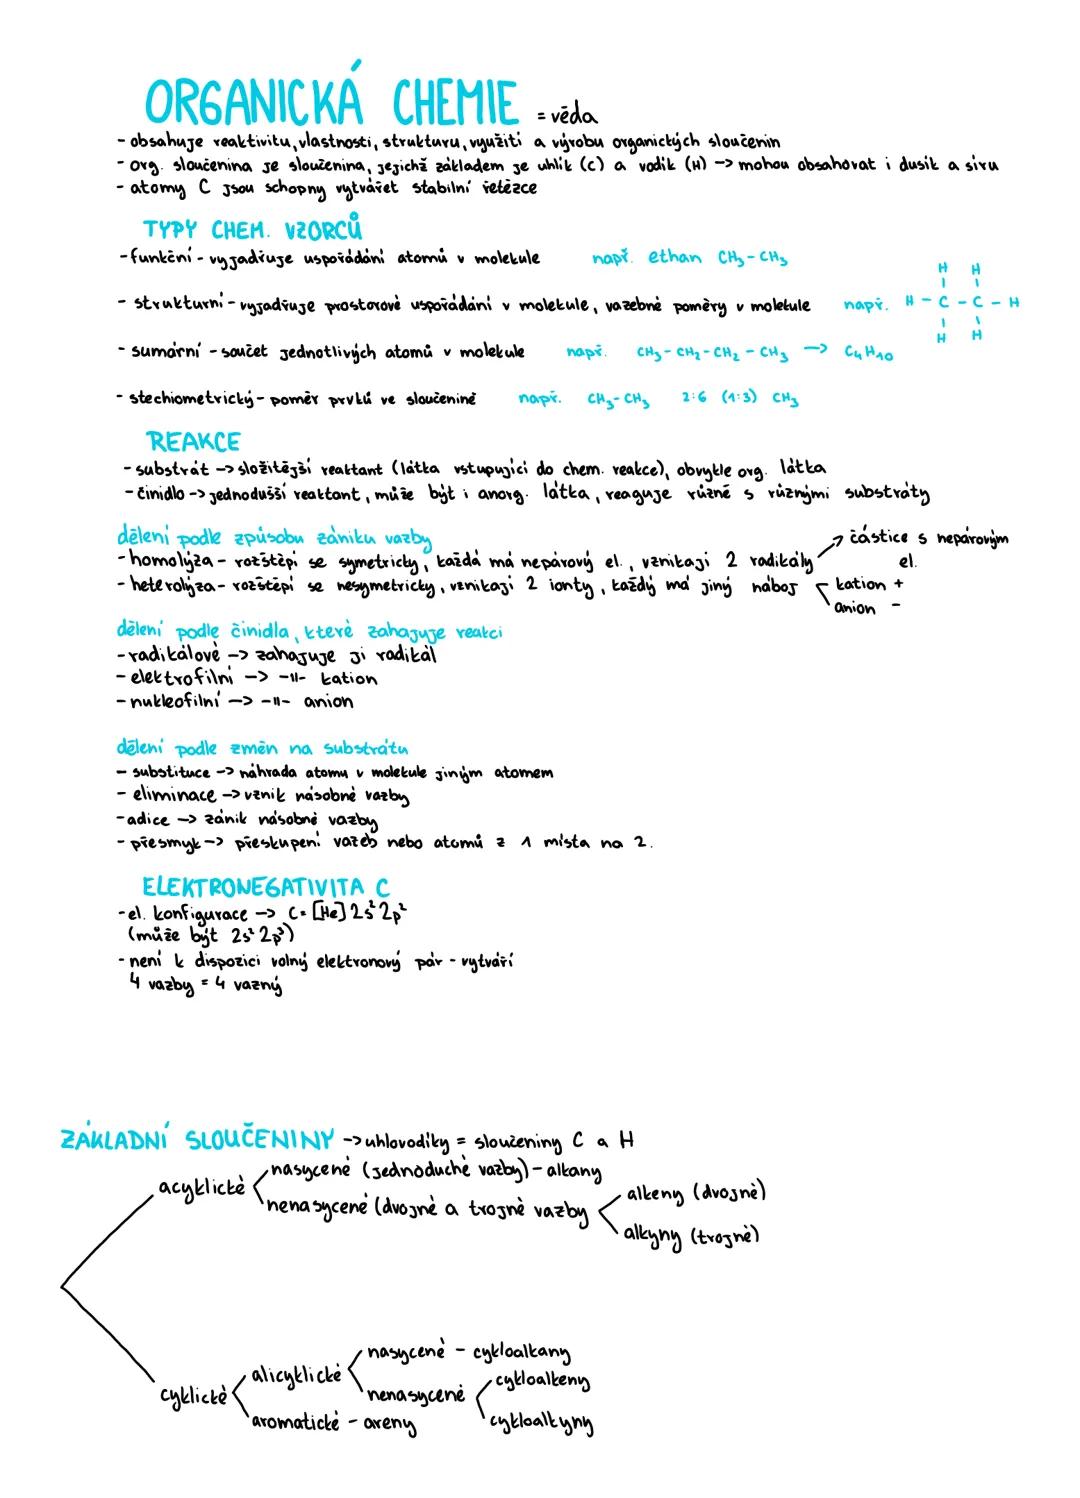 ORGANICKÁ CHEMIE = věda
- obsahuje reaktivitu, vlastnosti, strukturu, využití a výrobu organických sloučenin
- org. sloučenina je sloučenina, jejichž základem je uhlík (C) a vodík (H) -> mohou obsahovat i dusík a síru
- atomy C jsou schopny vytvářet stabilní řetězce
TYPY CHEM. VZORCŮ
- funkční - vyjadřuje uspořádání atomů v molekule např. ethan CH₃-CH₃
- strukturní - vyjadřuje prostorové uspořádání v molekule, vazebné poměry v molekule např.
H H
H - C - C - H
H H
- sumární - součet jednotlivých atomů v molekule např. CH₃-CH₂-CH₂-CH₃ -> C₄H₁₀
- stechiometrický - poměr prvků ve sloučenině např. CH₃-CH₃ 2:6 (1:3) CH₃
REAKCE
- substrát -> složitější reaktant (látka vstupující do chem. reakce), obvykle org. látka
- činidlo -> jednodušší reaktant, může být i anorg. látka, reaguje různě s různými substráty
dělení podle způsobu zániku vazby
- homolýza - rozštěpí se symetricky, každá má nepárový el., vznikají 2 radikály -> částice s nepárovým el.
- heterolýza - rozštěpí se nesymetricky, vznikají 2 ionty, každý má jiný náboj
kation +
anion -
dělení podle činidla, které zahajuje reakci
- radikálové -> zahajuje ji radikál
- elektrofilní -> -||- kation
- nukleofilní -> -||- anion
dělení podle změn na substrátu
- substituce -> náhrada atomu v molekule jiným atomem
- eliminace -> vznik násobné vazby
- adice -> zánik násobné vazby
- přesmyk -> přeskupení vazeb nebo atomů z 1 místa na 2.
ELEKTRONEGATIVITA C
- el. konfigurace -> C = [He] 2s² 2p²
(může být 2s² 2p³)
- není k dispozici volný elektronový pár - vytváří
4 vazby = 4 vazný
ZÁKLADNÍ SLOUČENINY -> uhlovodíky = sloučeniny C a H
acyklické
nasycené (jednoduché vazby) - alkany
nenasycené (dvojné a trojné vazby
alkeny (dvojné)
alkyny (trojné)
cyklické
alicyklické
nasycené - cykloalkany
nenasycené
cykloalkeny
cykloalkyny
aromatické - areny